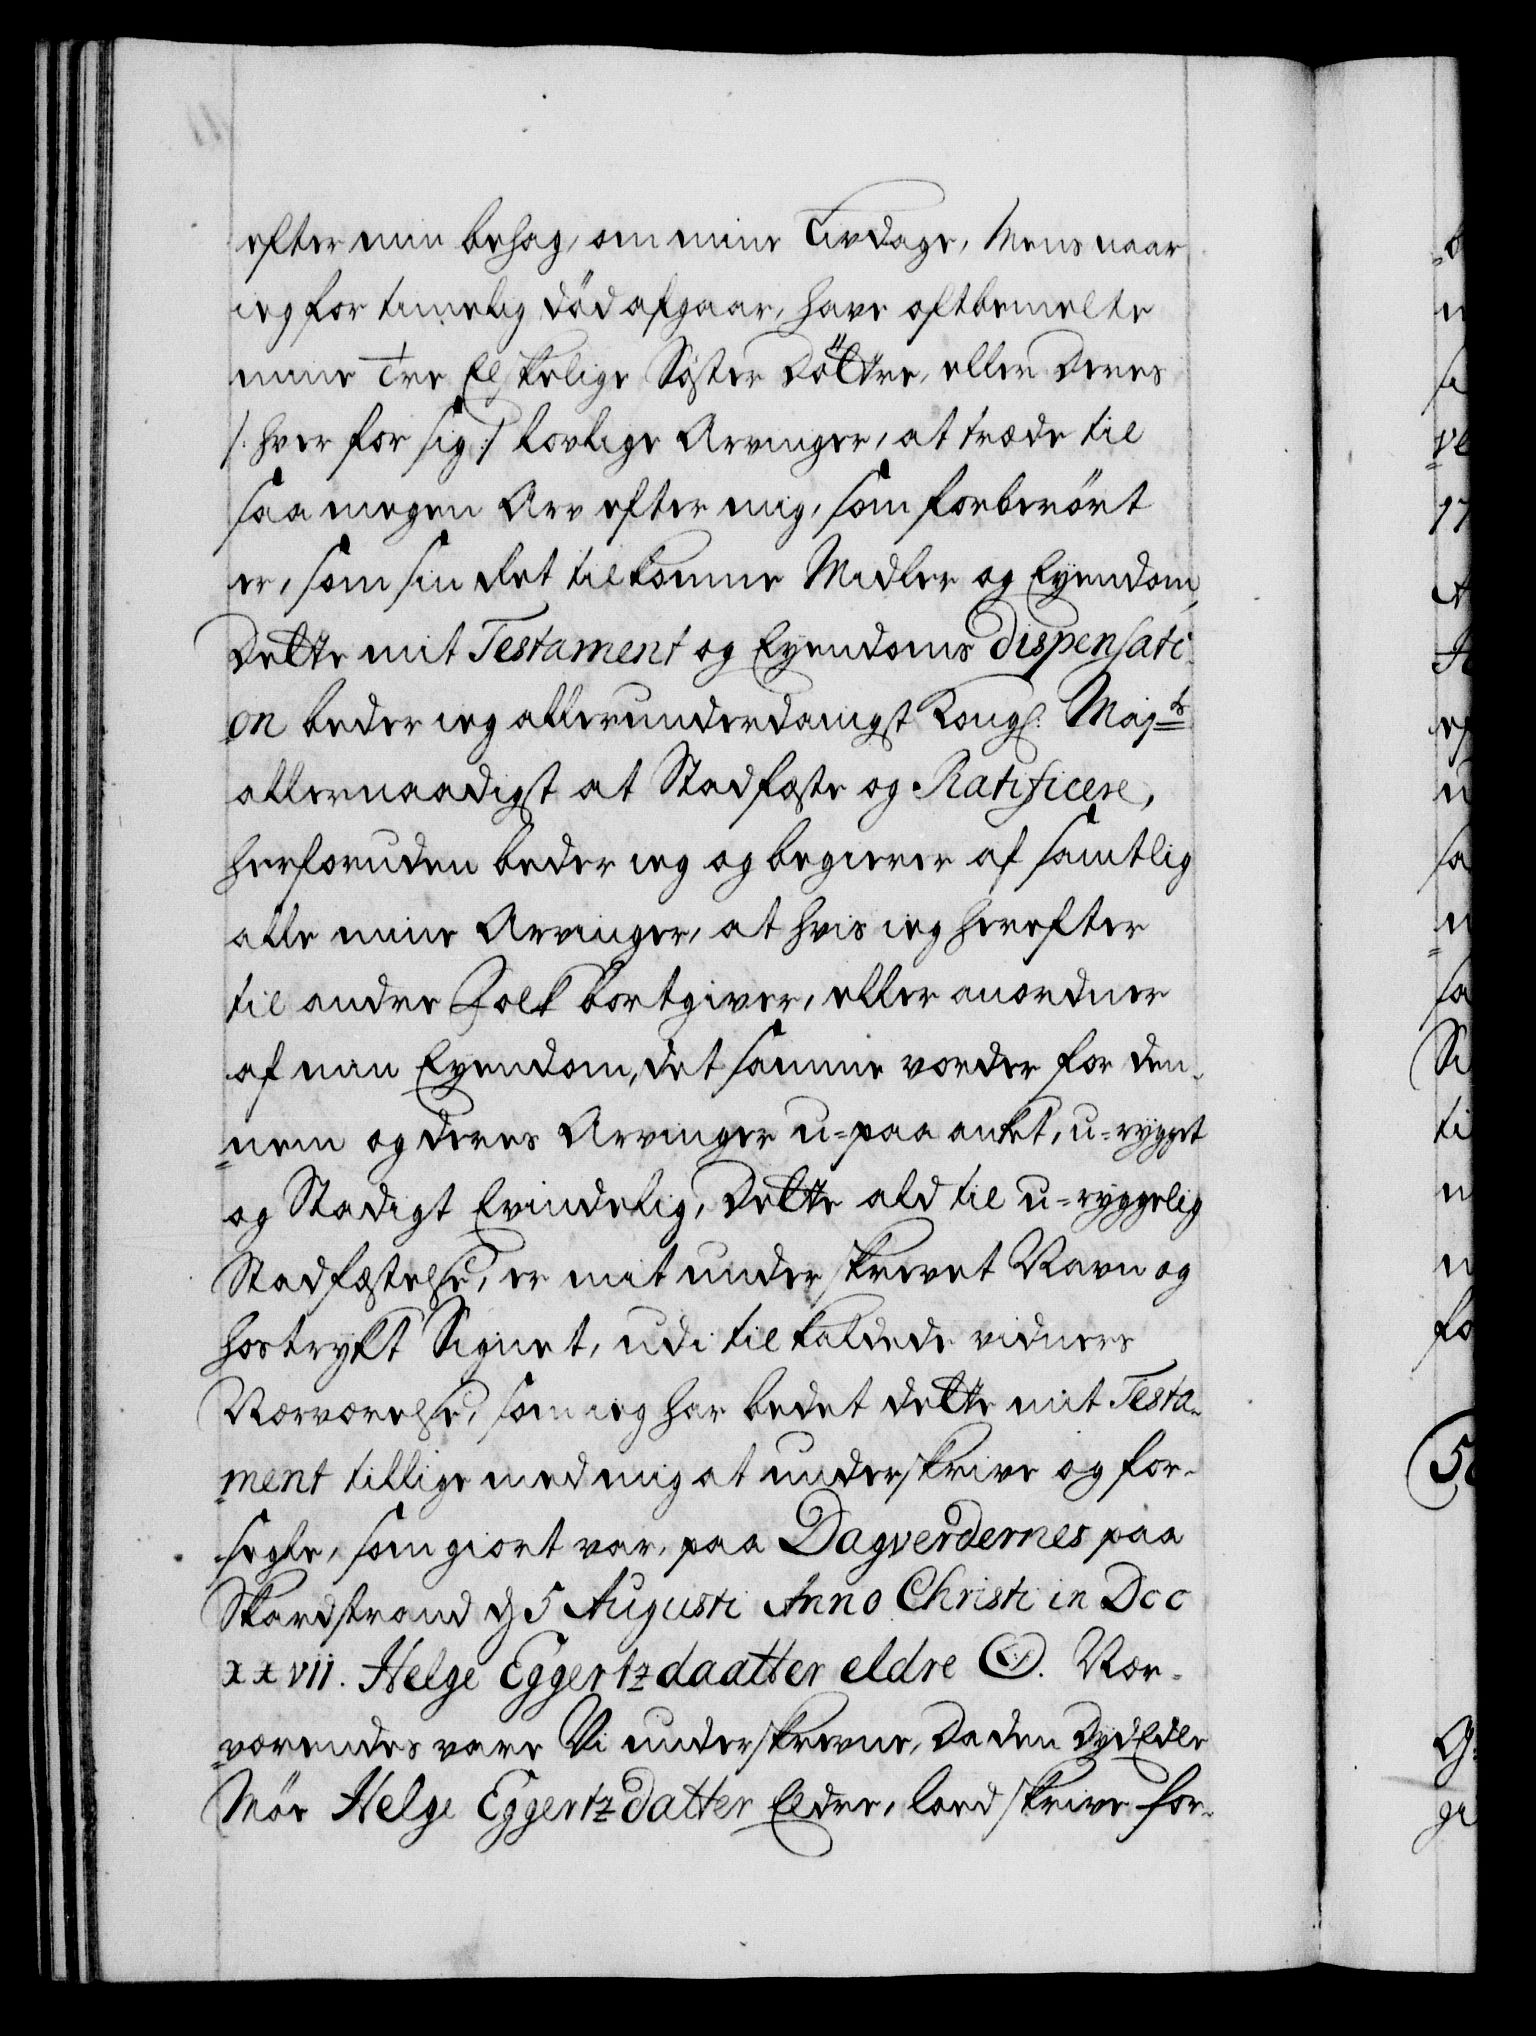 efter min behag, om mine Livdage, Mens naar
ieg for timelig død afgaar, have oftbemelte
mine Tre Elskelige Søster Døttre, eller Deres
/: hver for sig :/ lovlige Arvinger, at træde til
saa megen Arv efter mig, som forberørt
er, som sin det tilkomne Midler og Eyendom,
Dette mit Testament og Eyendoms dispensati-
on beder ieg allerunderdanigst Kongl: Majts
allernaadigst at Stadfæste og Ratificere,
herforuden beder ieg og begierer af samtlig
alle mine Arvinger, at hvis ieg herefter
til andre Folk bortgiver, eller anordner
af min Eyendom, det samme vorder for den-
nem og deres Arvinger u-paaanket, u-rygget
og Stadigt Evindelig, Dette ald til u-ryggelig
Stadfæstelse, er mit underskrevet Navn og
hostrykt Signet, udi tilkaldede vidners
Nærværelse, som ieg har bedet dette mit Testa-
ment tillige med mig at underskrive og for-
segle, som giort var, paa Dagverdernes paa
Skardstrand d 5 Augusti Anno Christi in Dcc
xxvii. Helge Eggertzdaatter eldre. Nær-
værendes vare Vi underskrevne, Da den DydEdle
Møe Helge Eggertzdatter Eldre, loed skrive for-